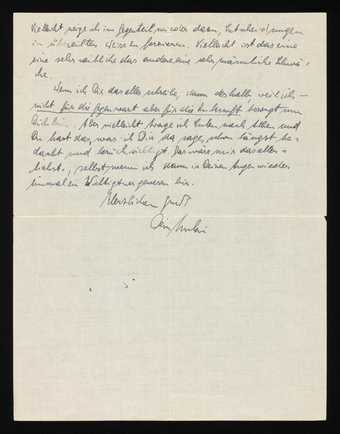 Vielleicht neige ich im Gegenteil wieder dazu, Enttäuschungen
in überzeitlichen Wesen zu formieren. Vielleicht ist das eine
eine sehr weibliche das andere eine sehr männliche Schwä-
che.
Wenn ich Dir das alles schreibe, dann deshalb, weil ich
nicht für die Gegenwart aber für die Zukunft besorgt um
Dich bin. Aber vielleicht trage ich Eulen nach Athen und
Du hast das, was ich Dir da sage, schon längst be-
dacht und berücksichtigt. Das wäre mir das aller-
liebste, selbst wenn ich dann in Deinen Augen wieder
einmal ein Wichtigtuer gewesen bin.
Herzlichen Gruß
Dein